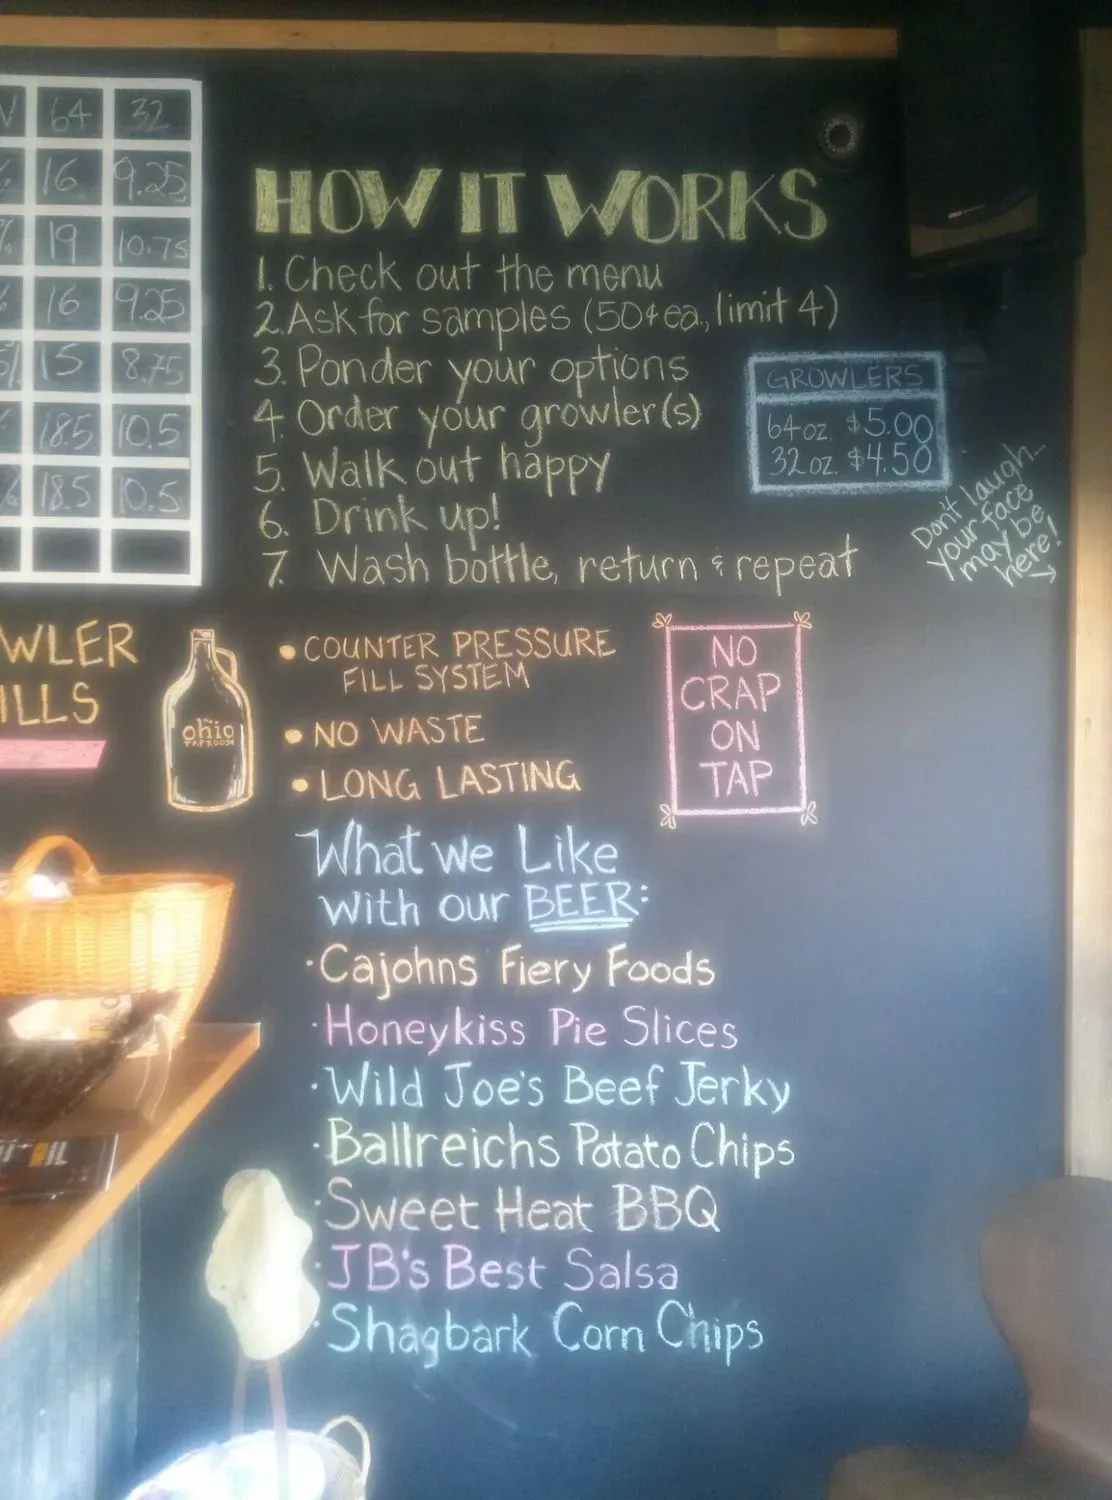 64 32
16 9.25
19 10.75
16 9.25
15 8.75
18.5 10.5
18.5 10.5
HOW IT WORKS
1. Check out the menu
2. Ask for samples (50¢ ea., limit 4)
3. Ponder your options
4. Order your growler(s)
5. Walk out happy
6. Drink up!
7. Wash bottle, return & repeat
GROWLERS
64 oz. $5.00
32 oz. $4.50
Don't laugh...
your face
may be
here!
WLER
ILLS
the
ohio
TAPROOM
• COUNTER PRESSURE
FILL SYSTEM
• NO WASTE
• LONG LASTING
NO
CRAP
ON
TAP
What we Like
with our BEER:
· Cajohns Fiery Foods
· Honeykiss Pie Slices
· Wild Joe's Beef Jerky
· Ballreichs Potato Chips
· Sweet Heat BBQ
· JB's Best Salsa
· Shagbark Corn Chips